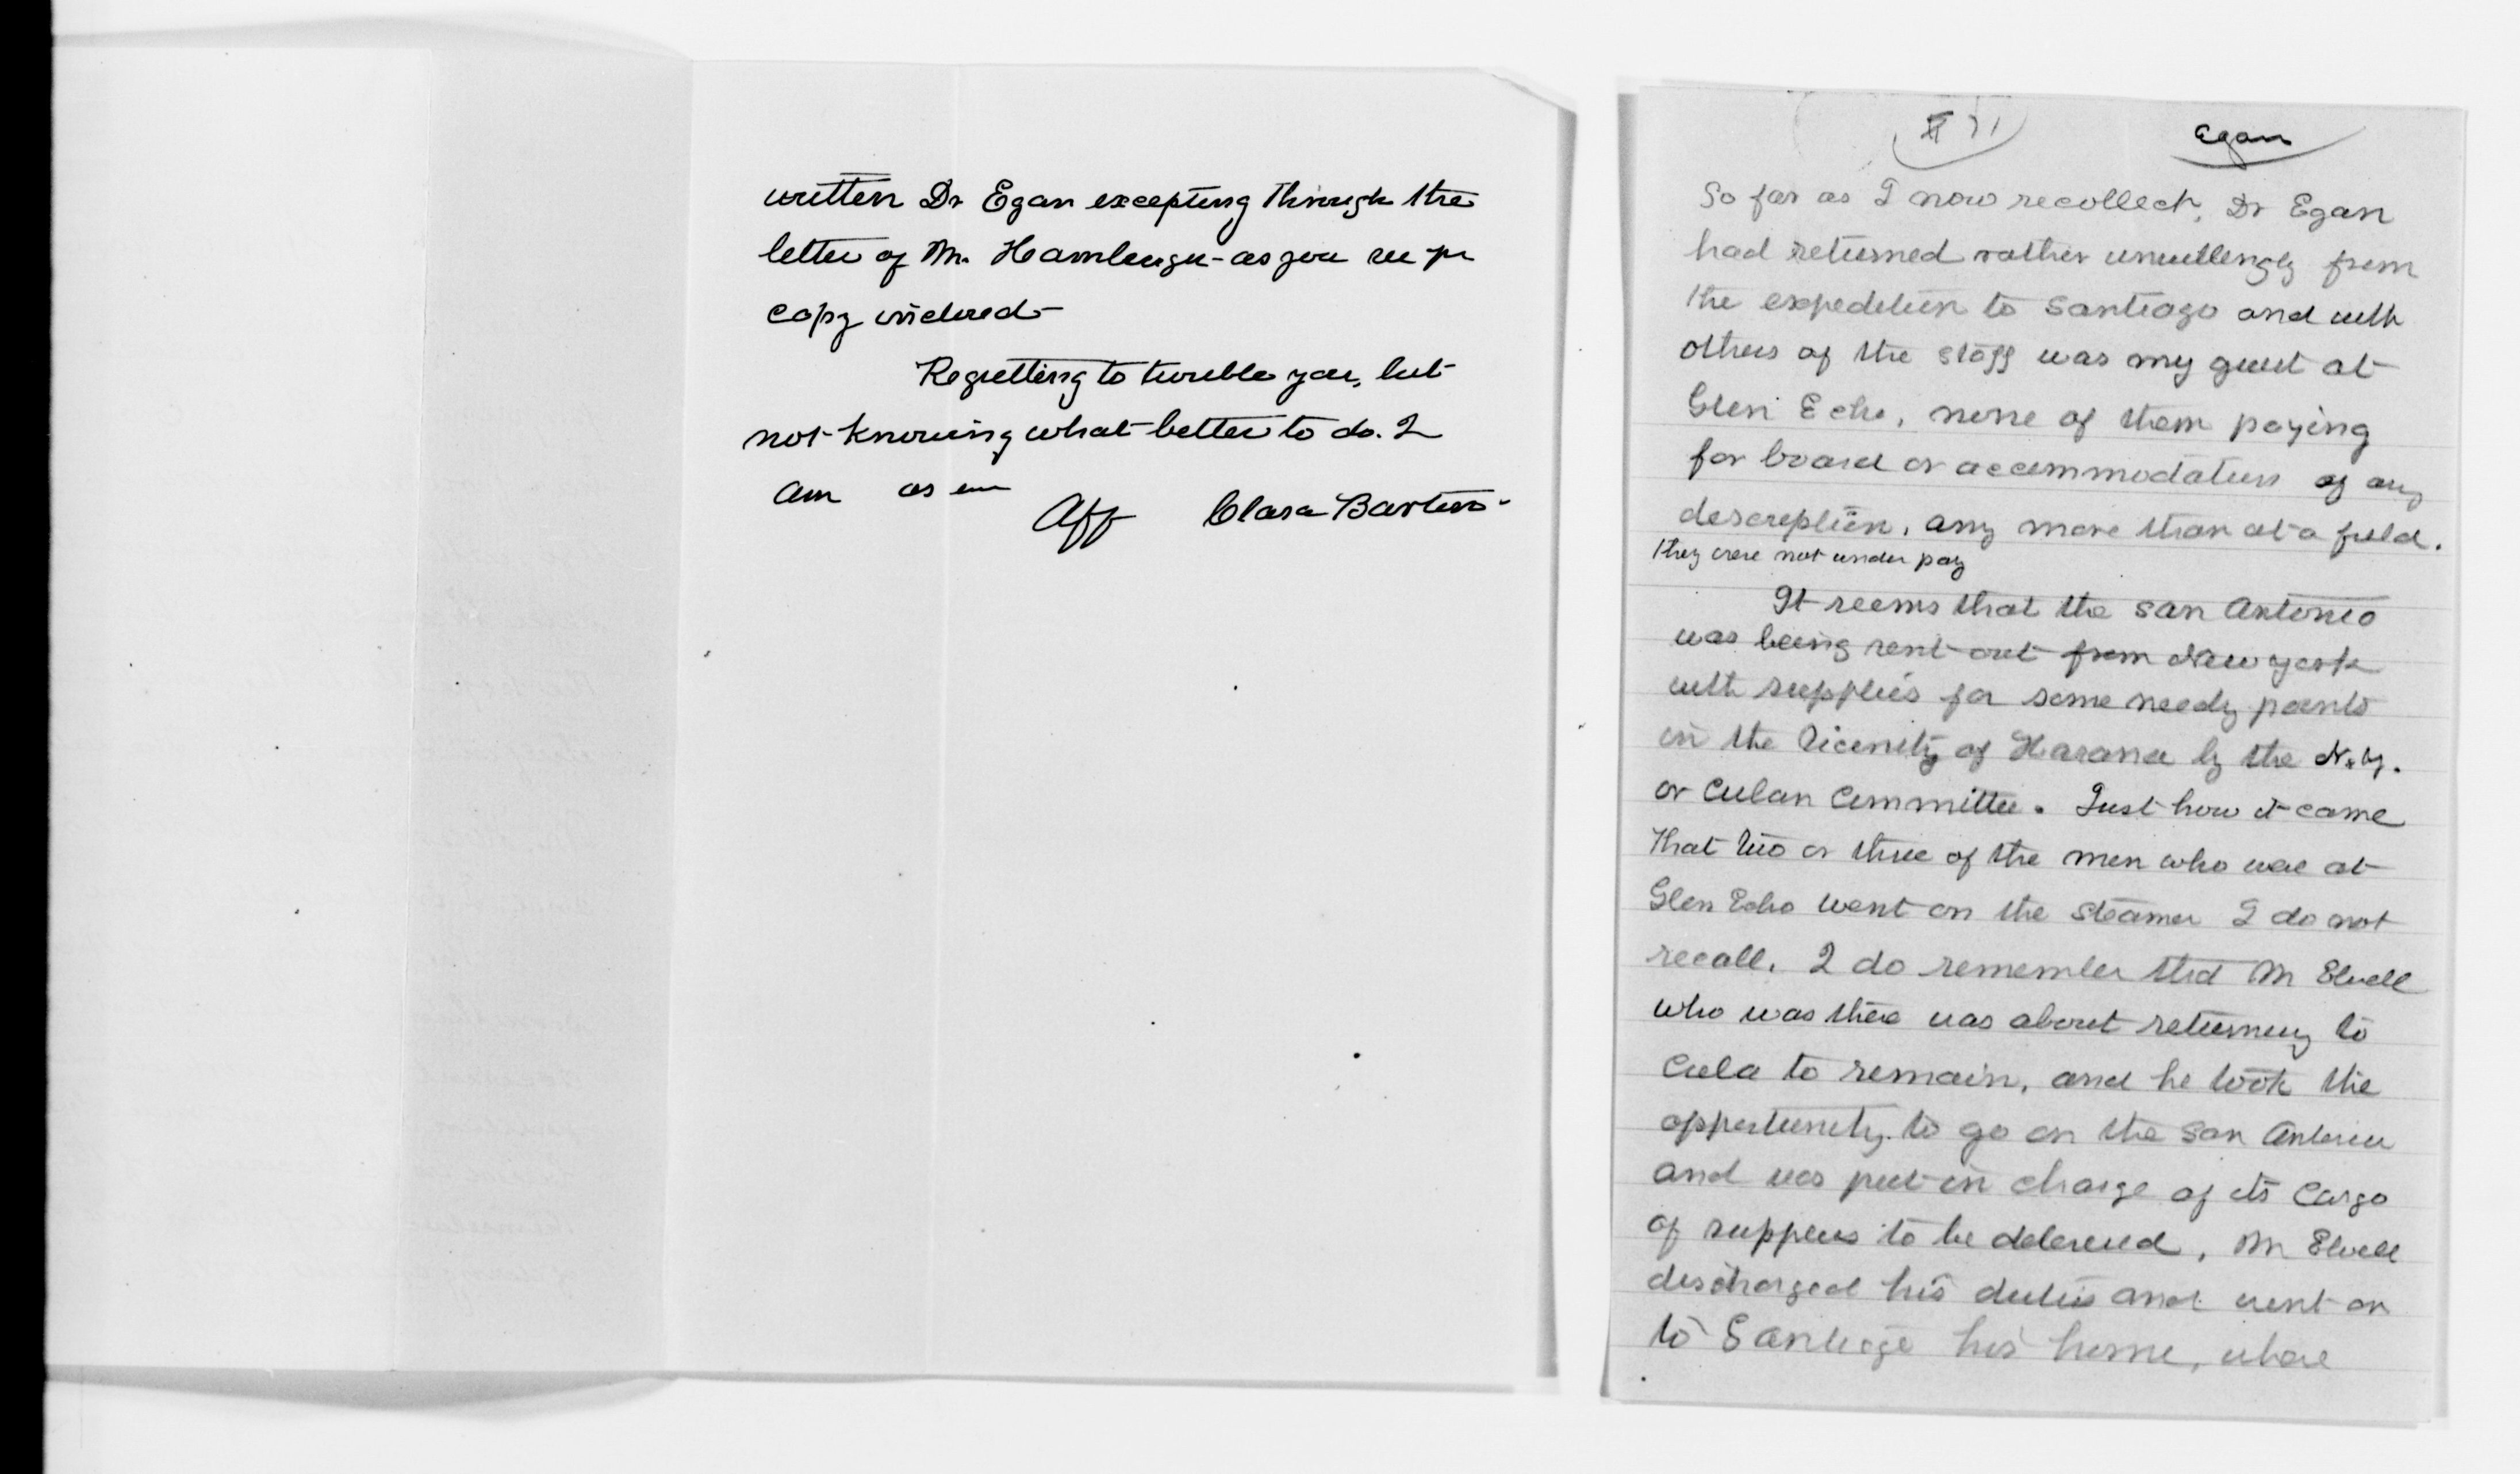 written Dr Egan excepting through the
letter of Mr. Hamlen - as you see pr
copy inclosed -
Regretting to trouble you, but
not knowing what better to do. I
am as ever
Aff Clara Barton -
Egan
So far as I now recollect, Dr Egan
had returned rather unwillingly from
the expedition to Santiago and with
others of the staff was my guest at
Glen Echo, none of them paying
for board or accommodations of any
description, any more than at a field.
they were not under pay
It seems that the San Antonio
was being sent out from New York
with supplies for some needy points
in the vicinity of Havana by the N.Y.
or Cuban Committee. Just how it came
that two or three of the men who were at
Glen Echo went on the steamer I do not
recall. I do remember that Mr Elwell
who was there was about returning to
Cuba to remain, and he took the
opportunity to go on the San Antonio
and was put in charge of its cargo
of supplies to be delivered, Mr Elwell
discharged his duties and went on
to Santiago his home, where